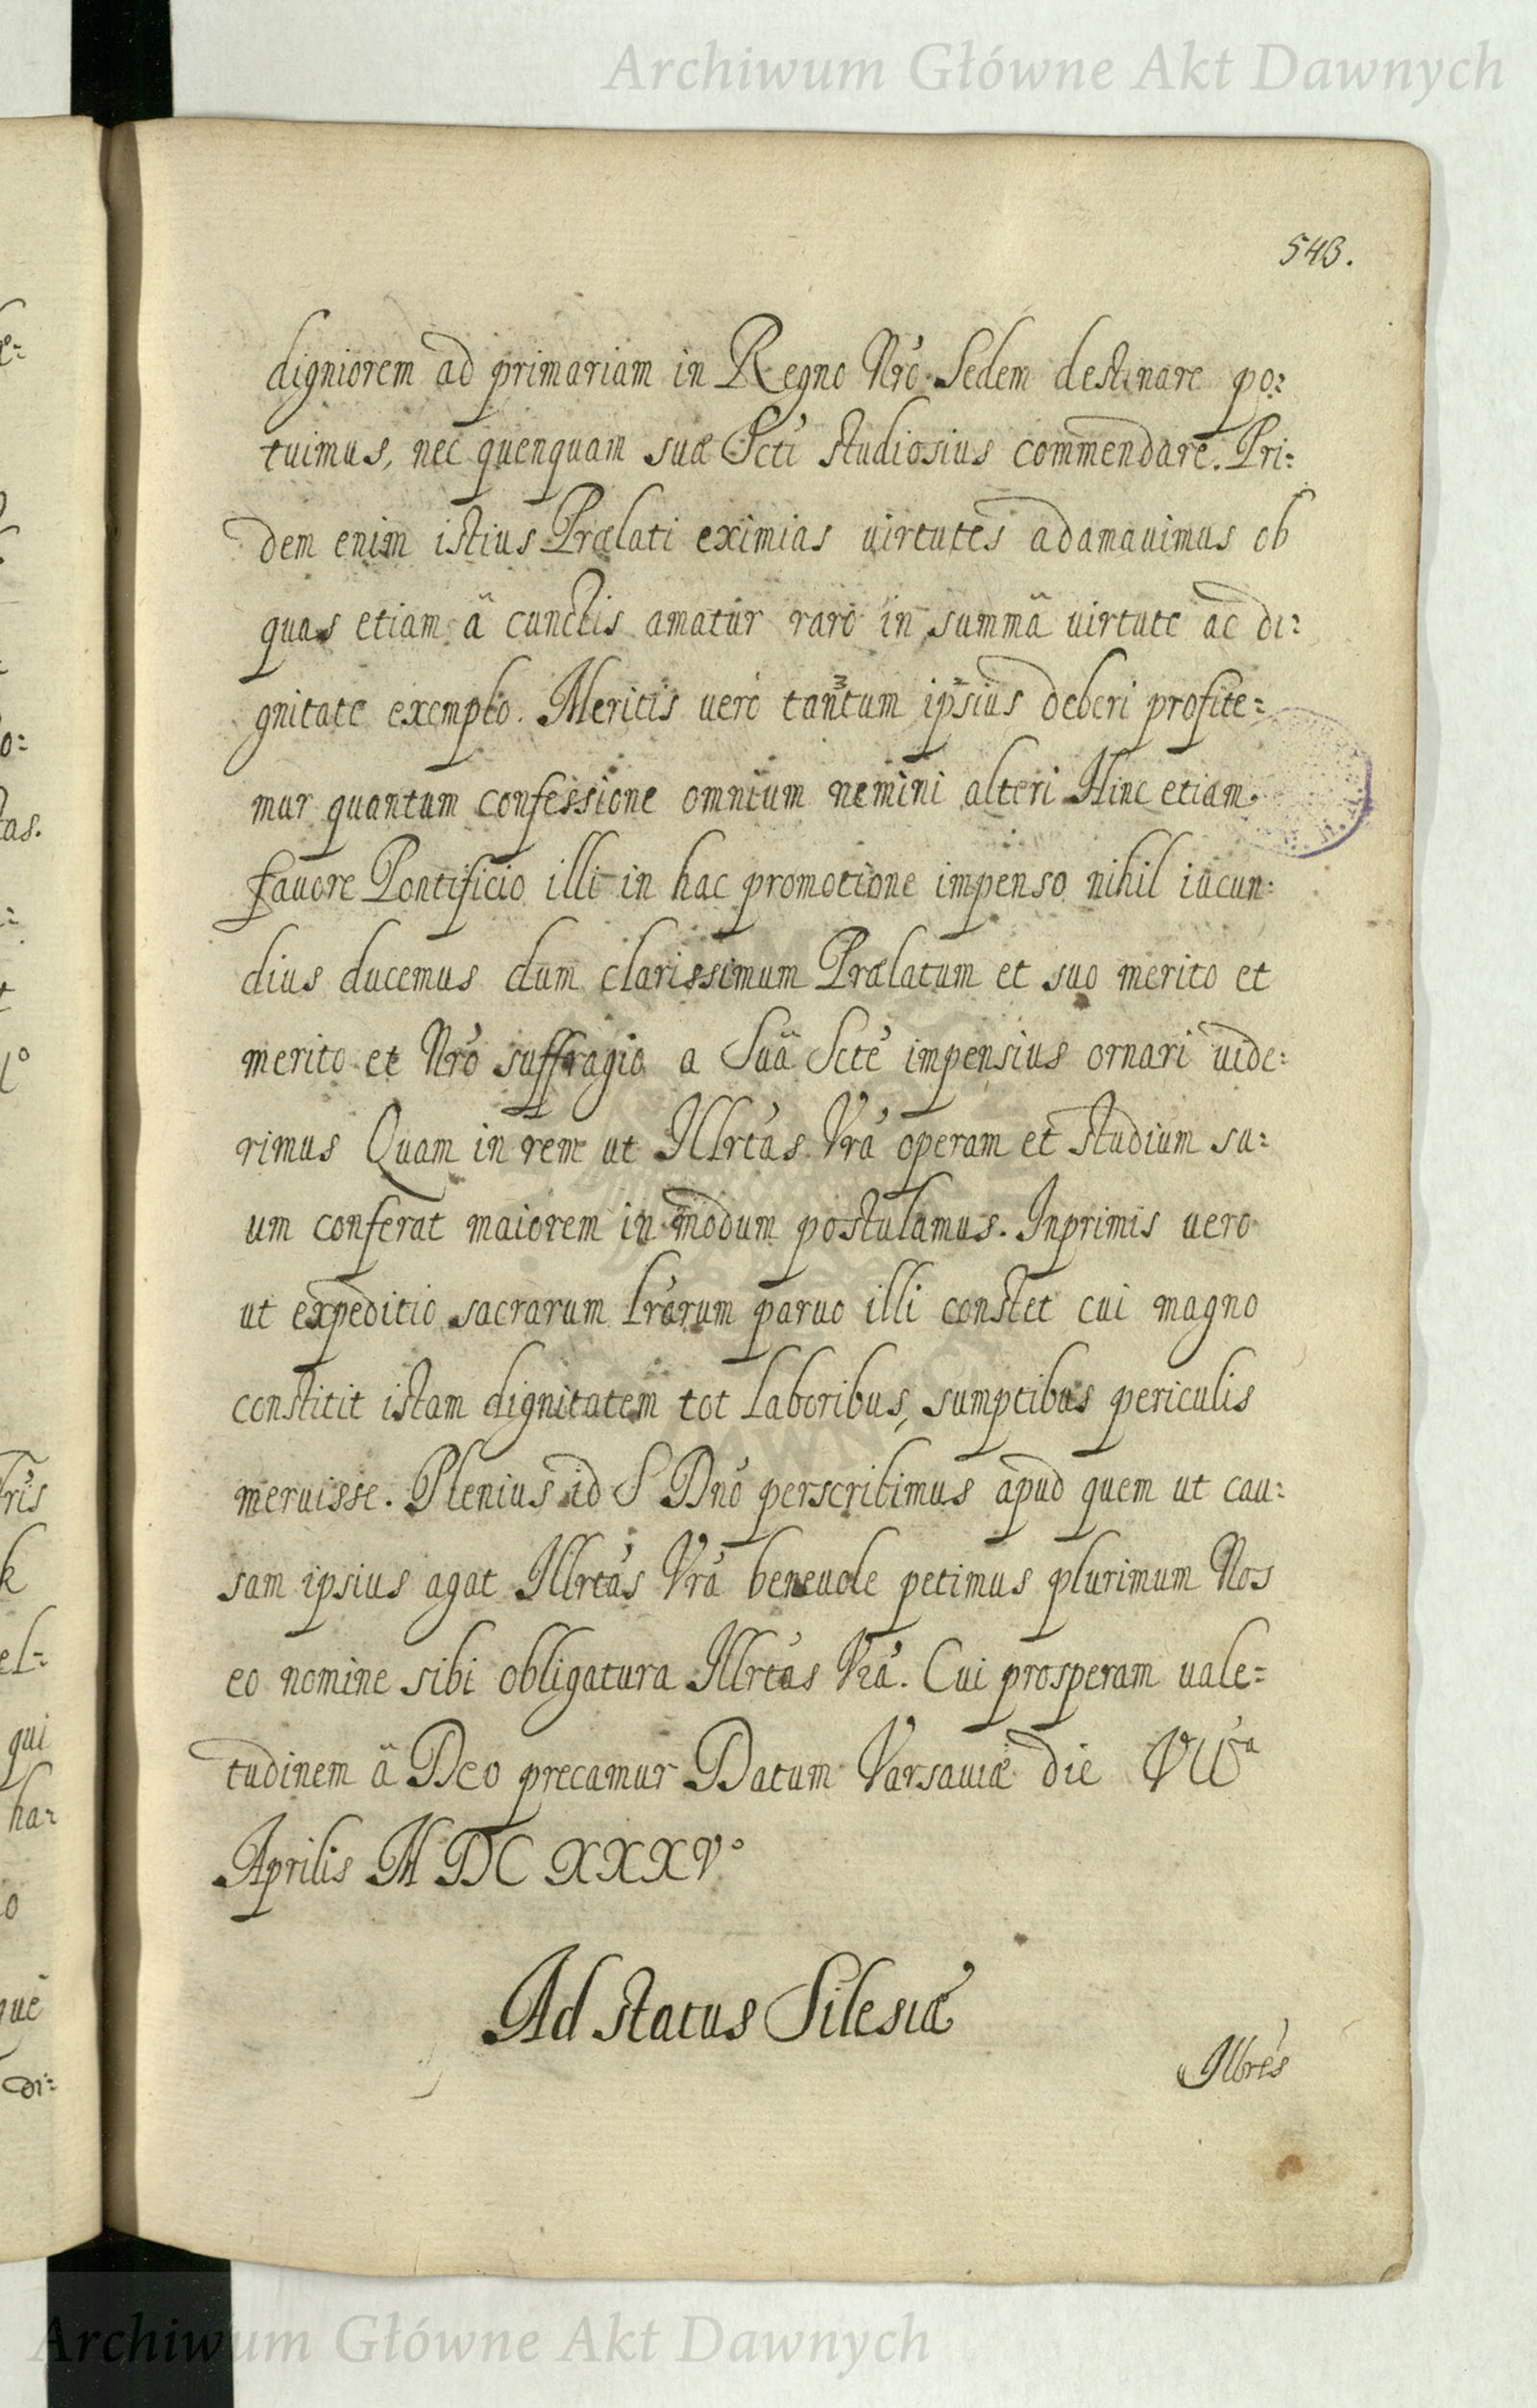 Archiwum Główne Akt Dawnych
543.
digniorem ad primariam in Regno Nro Sedem destinare po:
tuimus, nec quenquam suæ Scti studiosius commendare. Pri:
dem enim istius Prælati eximias uirtutes adamauimus ob
quas etiam â cunctis amatur raro in summâ uirtute ac di:
gnitate exemplo. Meritis uero tantum ipsius deberi profite:
mur quantum confessione omnium nemini alteri Hinc etiam
fauore Pontificio illi in hac promotione impenso nihil iucun:
dius ducemus dum clarissimum Prælatum et suo merito et
merito et Nro suffragio a Suâ Scte impensius ornari uide:
rimus Quam in rem ut Illrtas Vra operam et studium su:
um conferat maiorem in modum postulamus. Inprimis uero
ut expeditio sacrarum lrarum paruo illi constet cui magno
constitit istam dignitatem tot laboribus, sumptibus periculis
meruisse. Plenius id S Dno perscribimus apud quem ut cau:
sam ipsius agat Illrtas Vra beneuole petimus plurimum Nos
eo nomine sibi obligatura Illrtas Vra. Cui prosperam uale:
tudinem â Deo precamur Datum Varsauiæ die VII^a
Aprilis M DC XXXV°
Ad status Silesiæ
Illres
Archiwum Główne Akt Dawnych